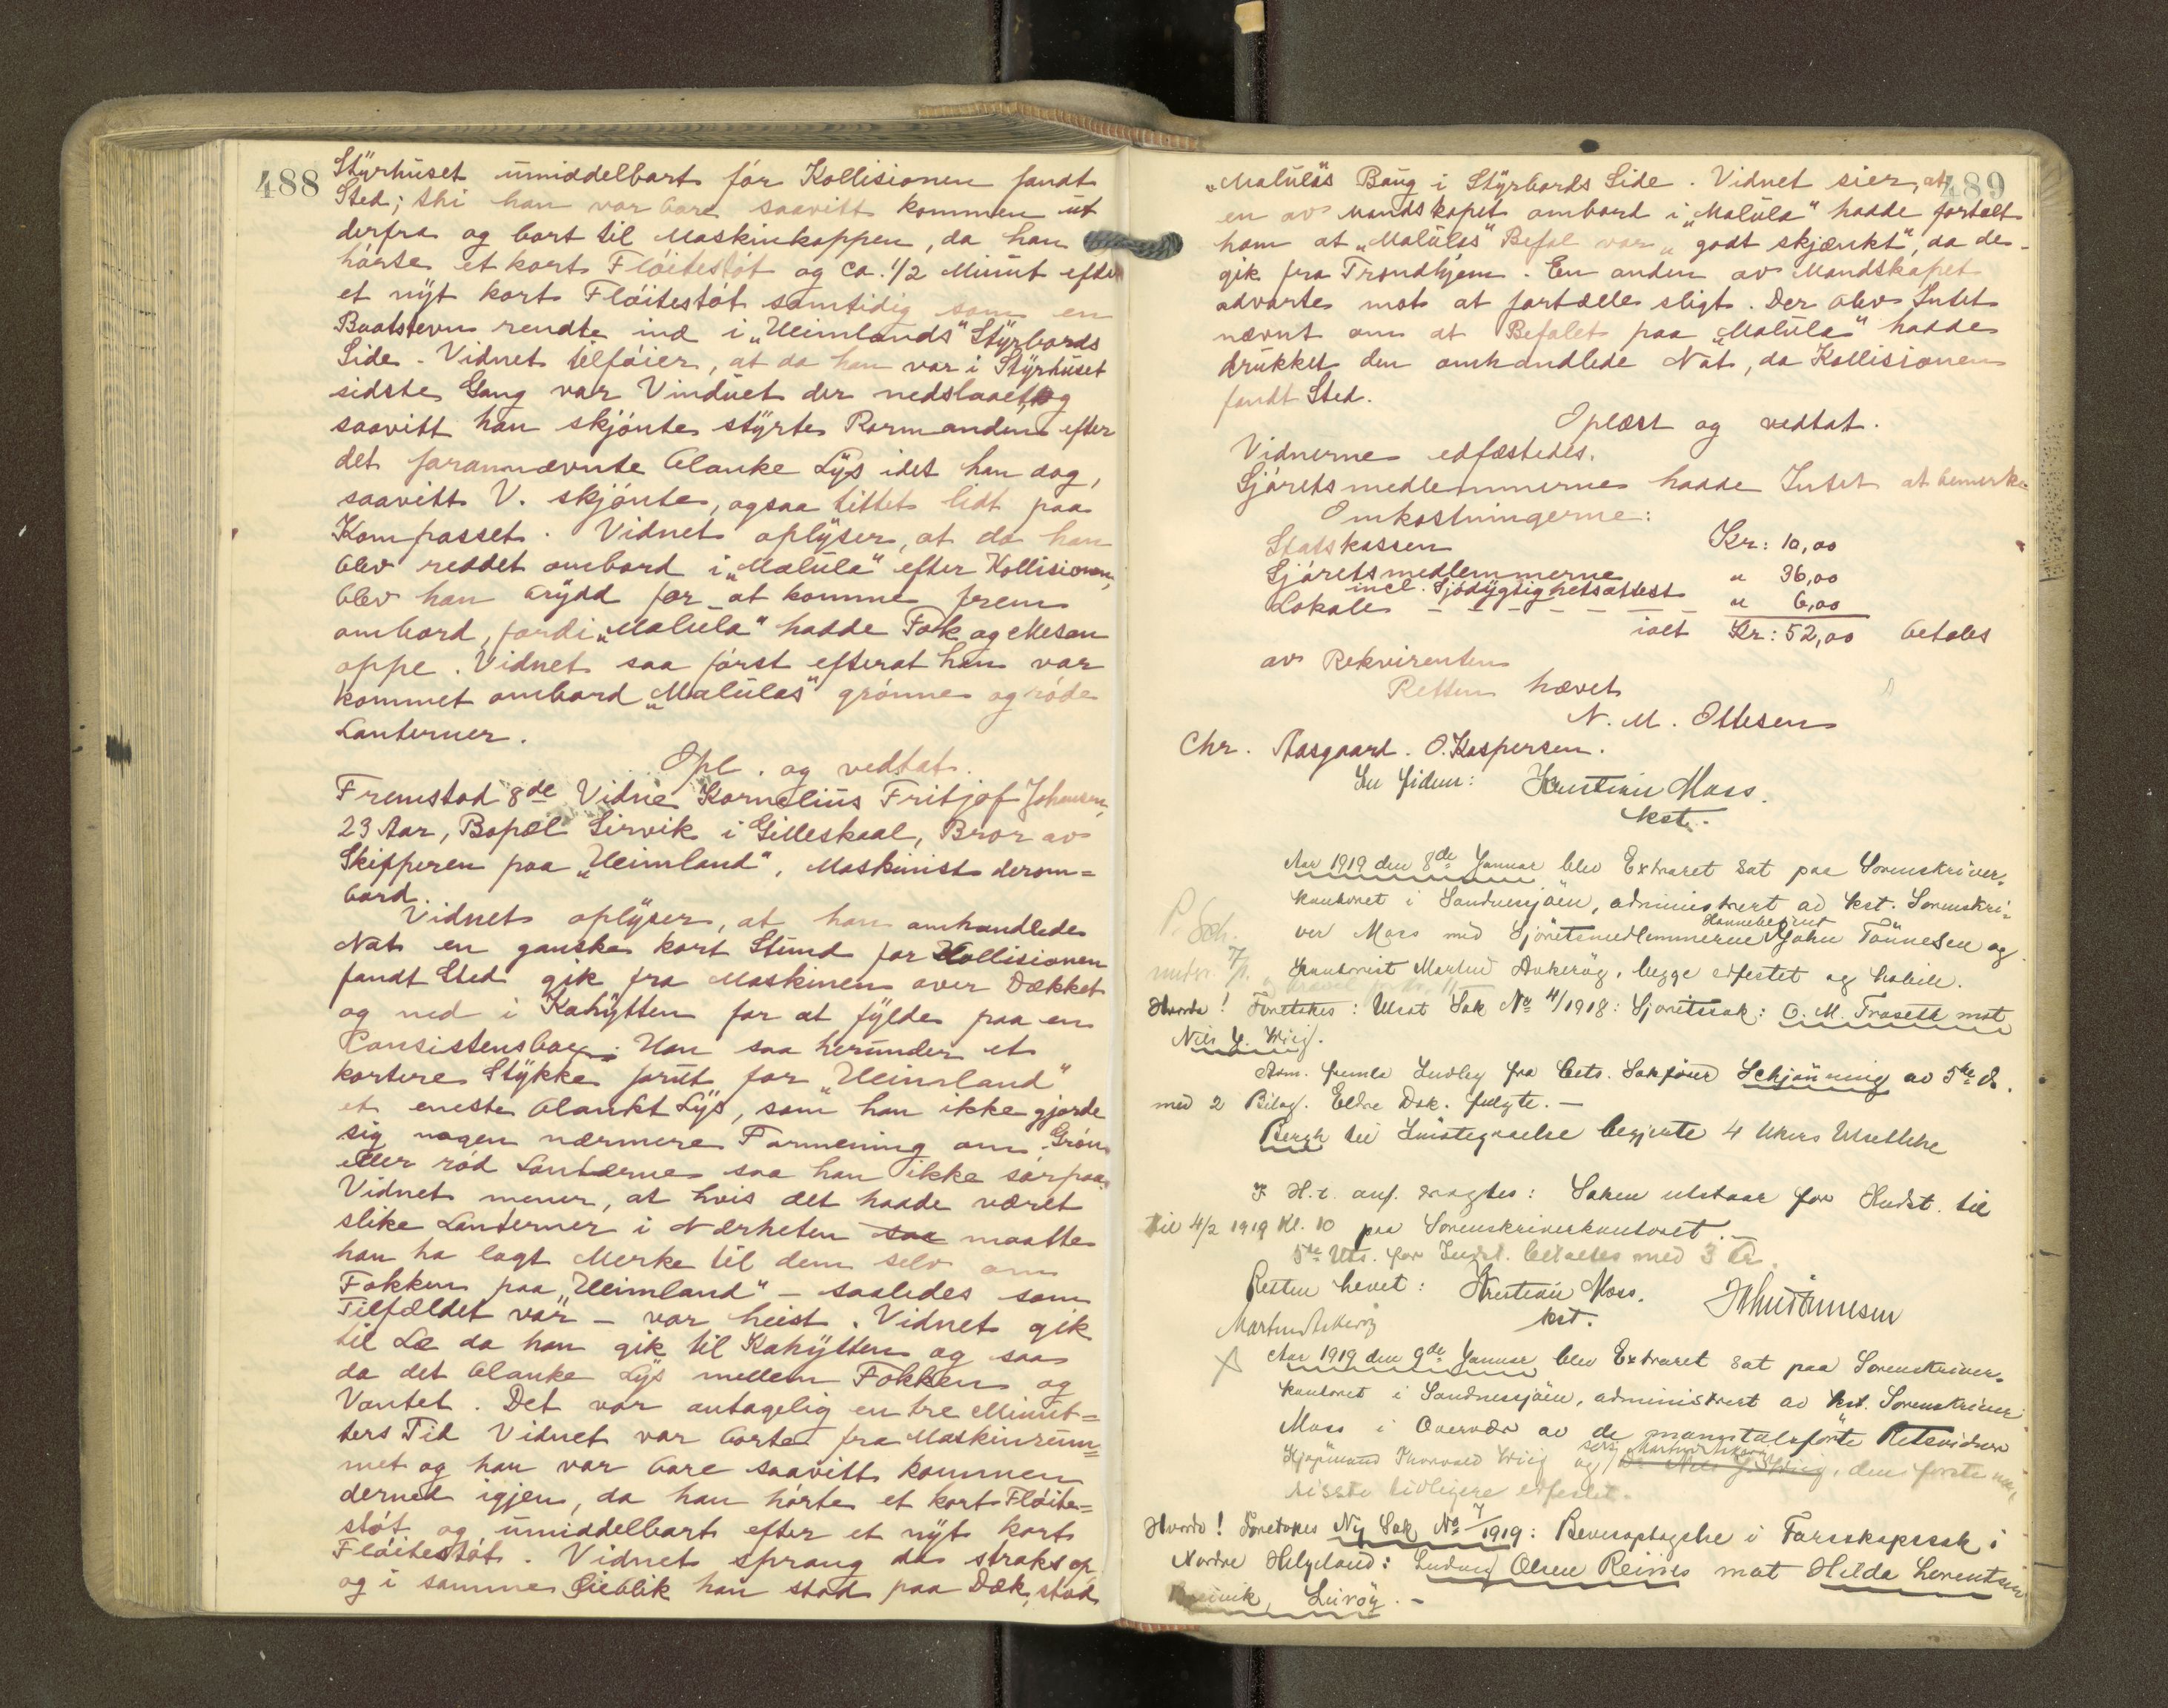 488
Styrhuset umiddelbart før Kollisionen fandt
Sted; thi han var bare saavitt kommen ut
derfra og bort til Maskinkappen, da han
hørte et kort Fløitestøt og ca. 1/2 Minut efter
et nyt kort Fløitestøt samtidig som en
Baatstevn rendte ind i „Heimlands" Styrbords
Side. Vidnet tilføier, at da han var i Styrhuset
sidste Gang var Vinduet der nedslaaet, og
saavitt han skjønte styrte Rormanden efter
det forannævnte blanke Lys idet han dog,
saavitt V. skjønte, ogsaa tittet lidt paa
Kompasset. Vidnet oplyser, at da han
blev reddet ombord i „Malula" efter Kollisionen,
blev han brydd for at komme frem
ombord, fordi „Malula" hadde Fok og Mesan
oppe. Vidnet saa først efterat han var
kommet ombord „Malulas" grønne og røde
Lanterner.
Opl. og vedtat.
Fremstod 8de Vidne Kornelius Fritjof Johansen,
23 Aar, Bopæl Sirvik i Gilleskaal, Bror av
Skipperen paa „Heimland", Maskinist derom=
bord.
Vidnet oplyser, at han omhandlede
Nat en ganske kort Stund før Kollisionen
fandt Sted gik fra Maskinen over Dækket
og ned i Kahytten for at fylde paa en
Consistensbox. Han saa herunder et
kortere Stykke forut for „Heimland"
et eneste blankt Lys, som han ikke gjorde
sig nogen nærmere Formening om. Grøn
eller rød Lanterne saa han ikke sørpaa.
Vidnet mener, at hvis det hadde været
slike Lanterner i Nærheten saa maatte
han ha lagt Merke til dem selv om
Fokken paa „Heimland" - saaledes som
Tilfældet var - var heist. Vidnet gik
til Læ da han gik til Kahytten og saa
da det blanke Lys mellem Fokken og
Vantet. Det var antagelig en tre Minut=
ters Tid Vidnet var borte fra Maskinrum=
met og han var bare saavitt kommen
derned igjen, da han hørte et kort Fløite=
støt og umiddelbart efter et nyt kort
Fløitestøt. Vidnet sprang da straks op
og i samme Øieblik han stod paa Dæk, stod
489
„Malulas Baug i Styrbords Side. Vidnet sier, at
en av Mandskapet ombord i „Malula" hadde fortalt
ham at „Malulas" Befal var „godt skjænkt", da de
gik fra Trondhjem. En anden av Mandskapet
advarte mot at fortælle sligt. Der blev Intet
nævnt om at Befalet paa „Malula" hadde
drukket den omhandlede Nat, da Kollisionen
fandt Sted.
Oplæst og vedtat.
Vidnerne edfæstedes.
Sjøretsmedlemmerne hadde Intet at bemerke
Omkostningerne:
Statskassen Kr: 10,00
Sjøretsmedlemmerne " 36,00
incl. Sjødygtighetsattest
Lokale " 6,00
ialt Kr: 52,00 betales
av Rekvirenten
Retten hævet
N. M. Ottesen
Chr. Aasgaard. O. Kaspersen.
Kristian Moss.
kst.
Aar 1919 den 8de Januar blev Extraret sat paa Sorenskriver=
kontoret i Sandnessjøen, administrert av kst. Sorenskri=
ver Moss med Sjøretsmedlemmerne John Tønnesen og
Martin Askerøy, begge edfestet og habile.
Hvorda! Foretokes: Utsat Sak No 4/1918: Sjøretssak: O. M. Traseth mot
Nils J. Wiig.
Adm. fremla Indlæg fra Schjønning av 5te ds.
med 2 Bilag. Eldre Dok. fulgte. -
Bergh til Imøtegaaelse begjerte 4 Ukers Utsettelse
Saken utstaar for til
til 4/2 1919 Kl. 10 paa Sorenskriverkontoret. -
5te Uts. for betaltes med 3 Kr.
Retten hevet: Kristian Moss. John Tønnesen
Martin Askerøy kst.
Aar 1919 den 9de Januar blev Extraret sat paa Sorenskriver=
kontoret i Sandnessjøen, administrert av kst. Sorenskriver
Moss i Overvær av de mangtalsførte Retsvidner
Kjøpmand Thorvald Wiig og Martin Askerøy, den første
sidste tidligere edfestet.
Hvorda! Foretokes Ny Sak No 7/1919: Bevisoptagelse i Farsskapssak i
Nordre Helgeland: Ludvig Olsen Reines mot Hilda Lorentsen
Lurøy. -